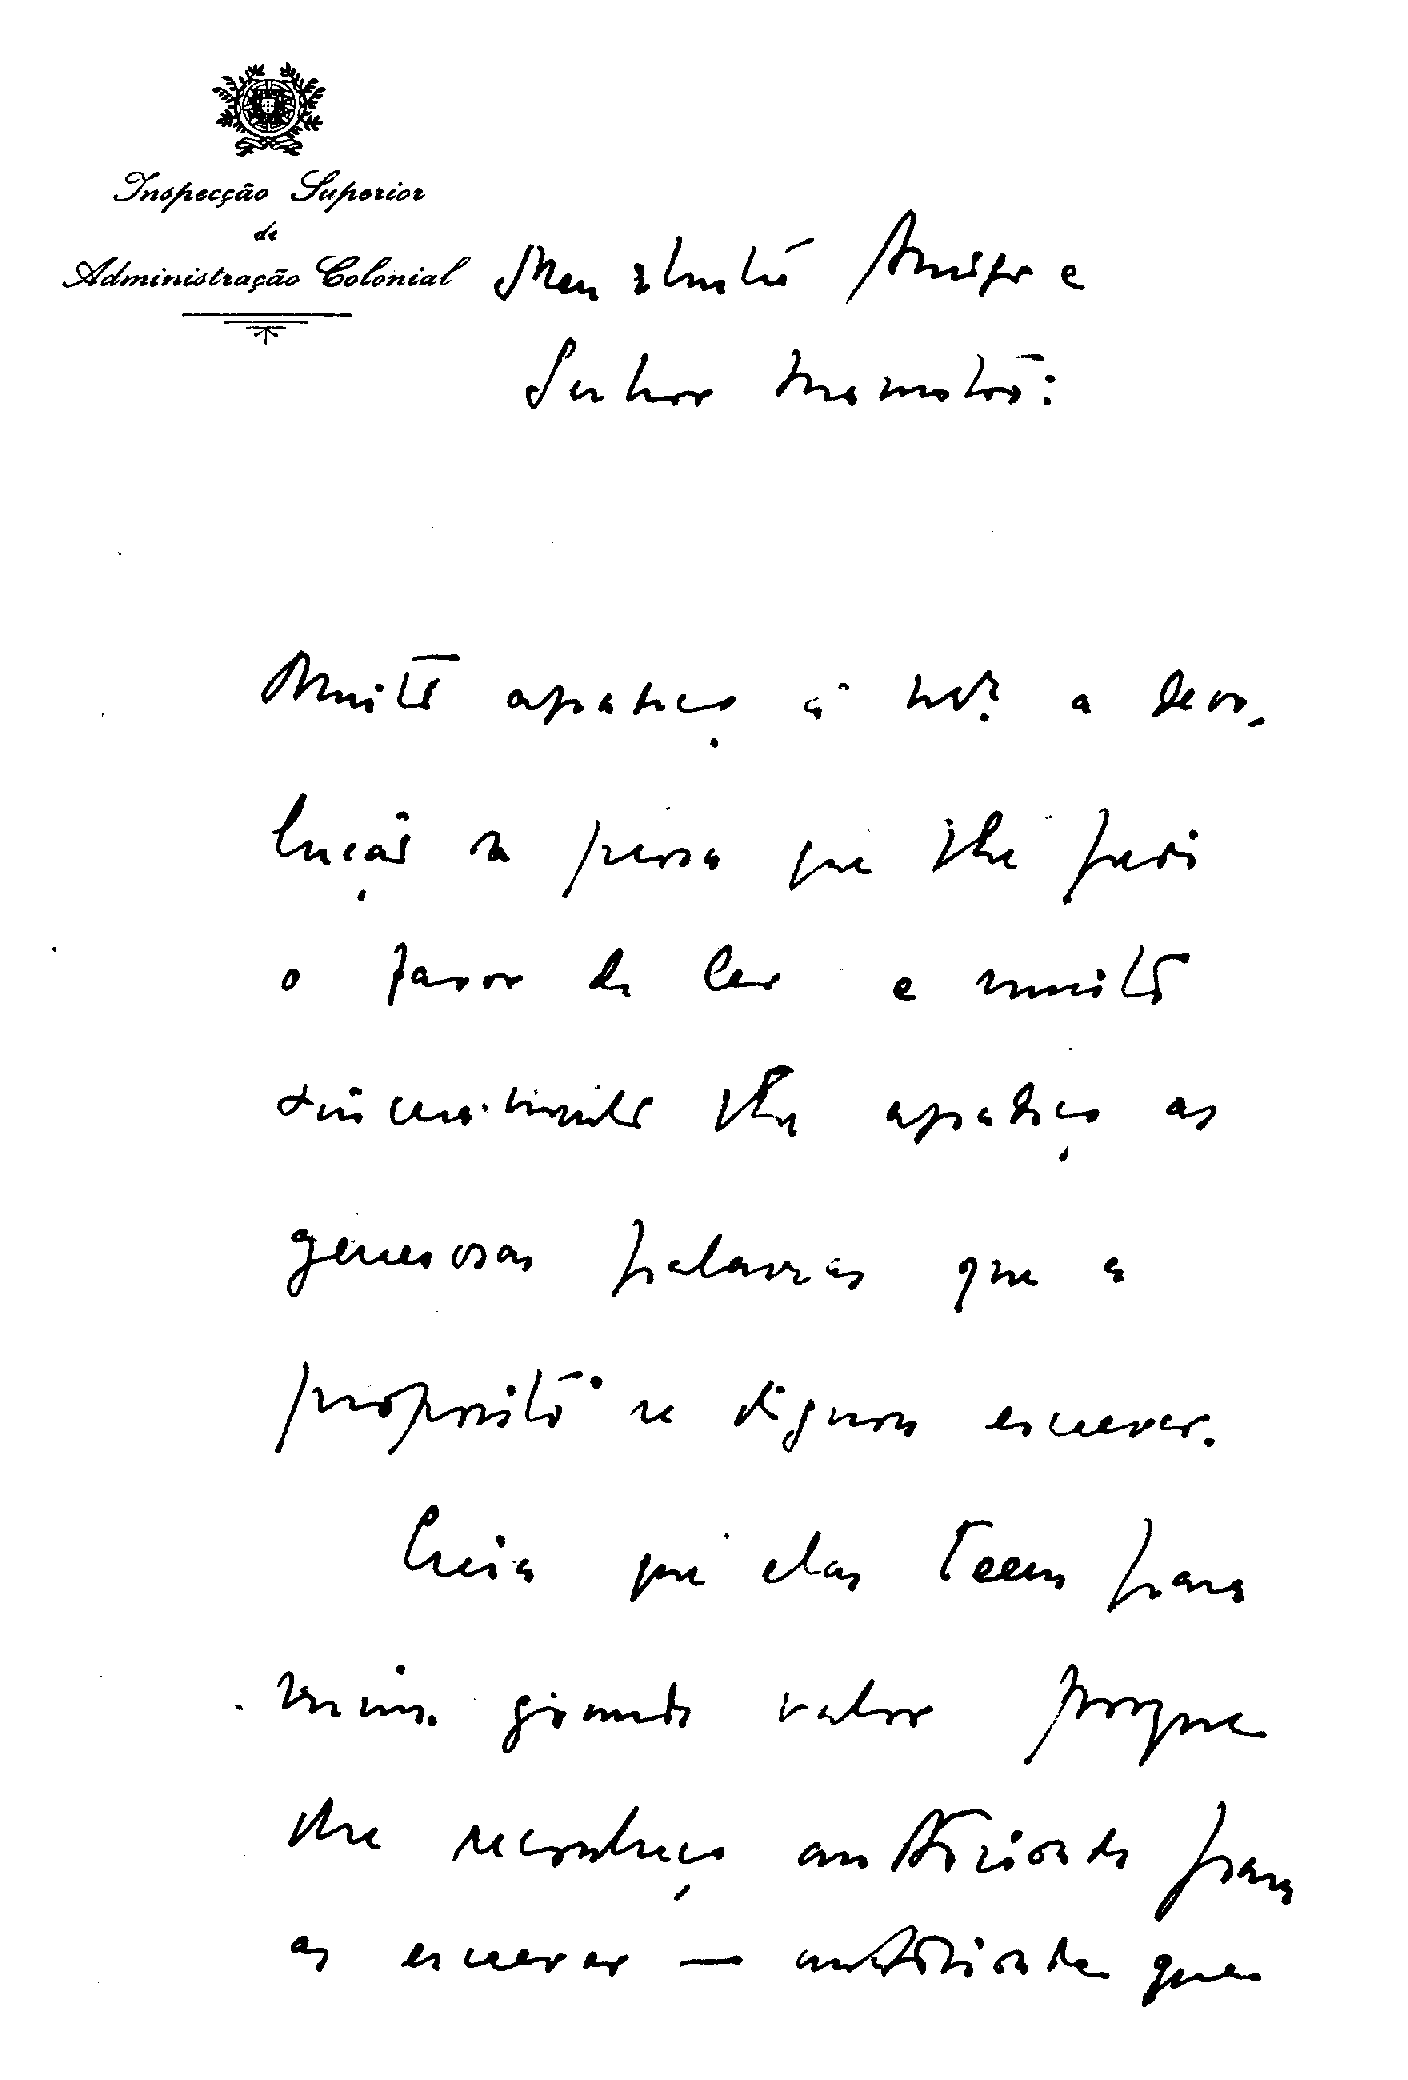 Inspecção Superior
de
Administração Colonial
Meu Amigo e
Senhor
Muito agradeço a devo-
lução da que lhe pedi
o favor de ler e muito
sinceramente lhe agradeço as
generosas palavras que a
proposito se dignou escrever.
Creia que elas teem para
mim grande valor porque
lhe reconheço autoridade para
as escrever — autoridade que